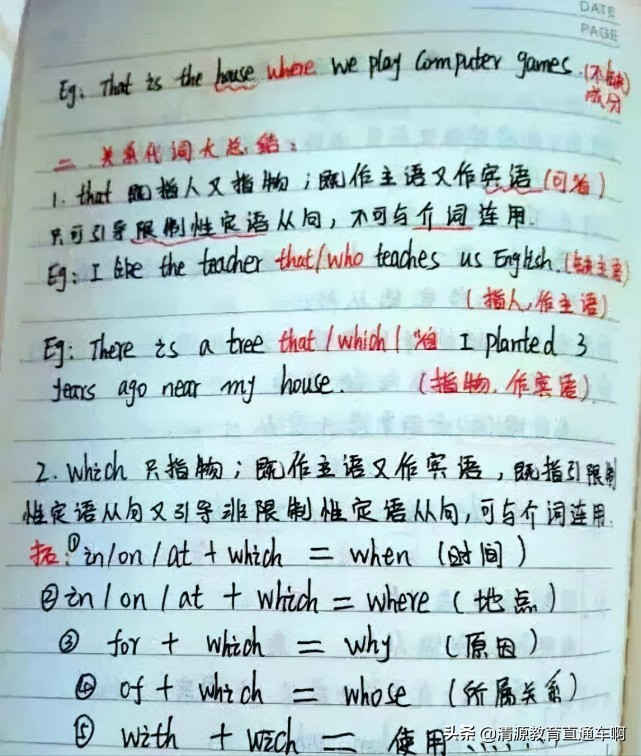 DATE
PAGE
Eg: That is the house where we play computer games. (不缺成分)
二 关系代词大总结:
1. that 既指人又指物;既作主语又作宾语(可省)
只可引导限制性定语从句,不可与介词连用.
Eg: I like the teacher that/who teaches us English. (缺主语)
(指人,作主语)
Eg: There is a tree that/which/省 I planted 3
years ago near my house. (指物,作宾语)
2. which 只指物;既作主语又作宾语,既指引限制
性定语从句又引导非限制性定语从句,可与介词连用.
拓:① in/on/at + which = when (时间)
② in/on/at + which = where (地点)
③ for + which = why (原因)
④ of + which = whose (所属关系)
⑤ with + wech = 使用......
头条 @清源教育直通车啊